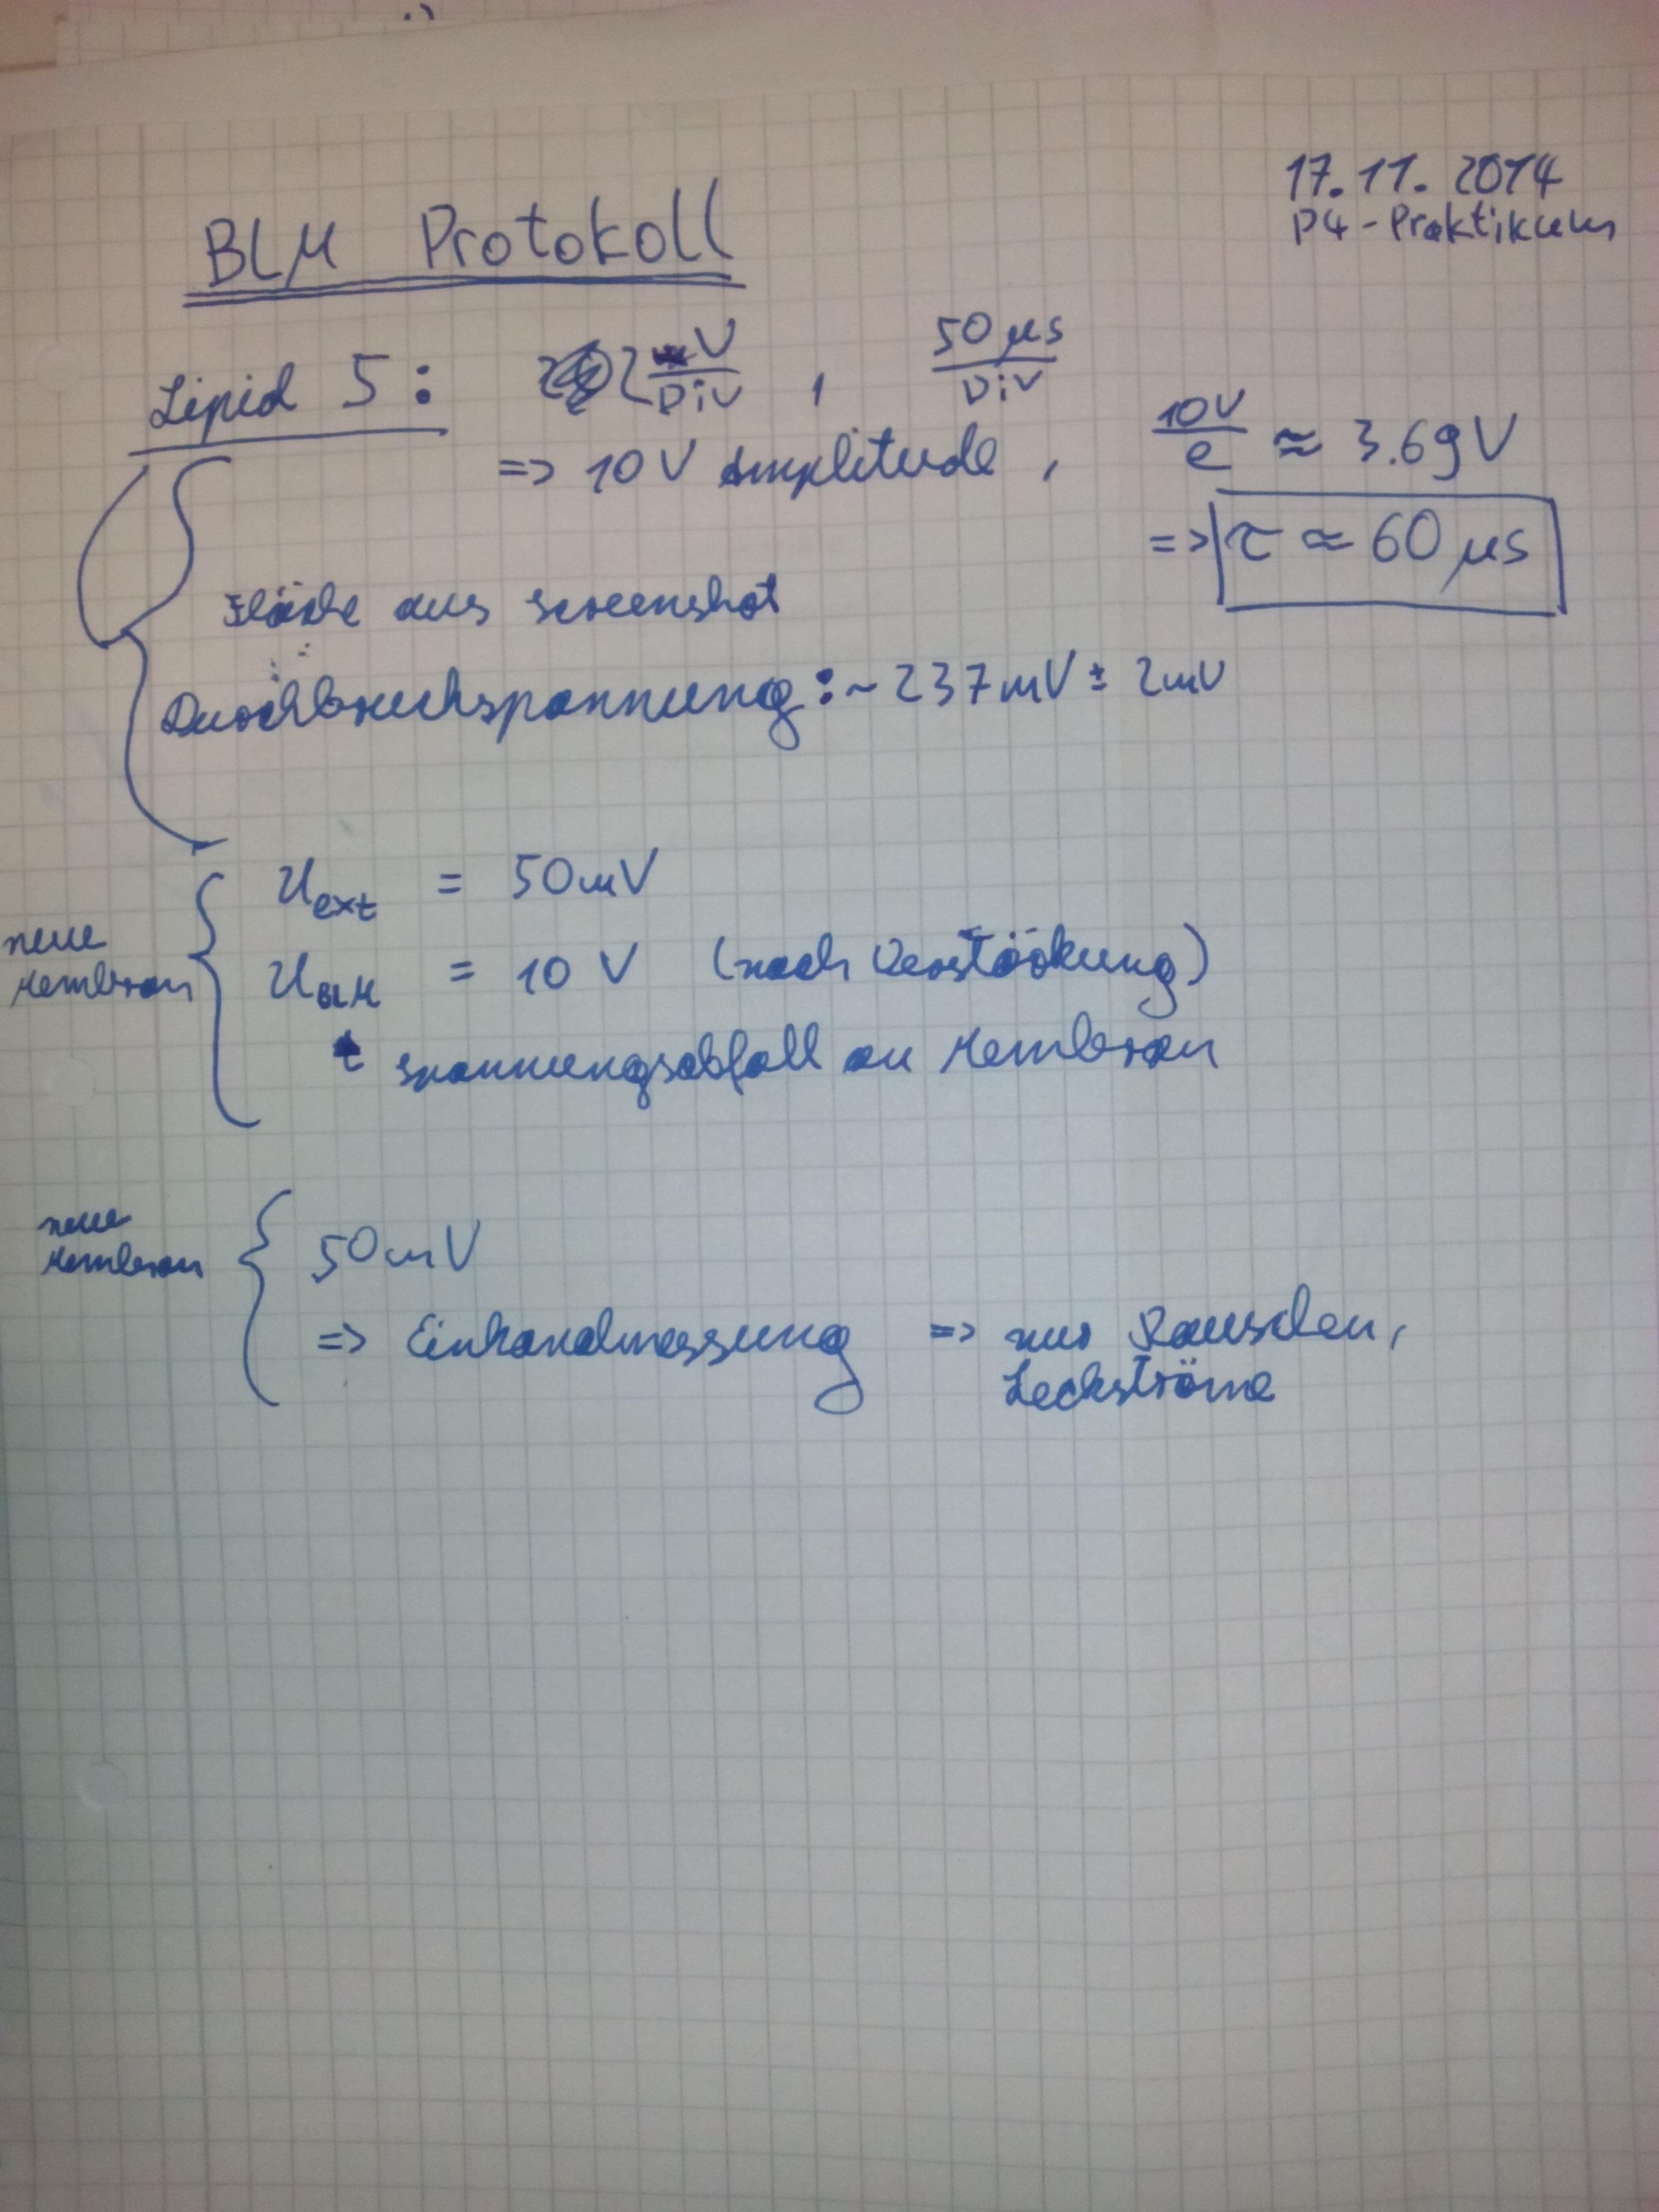 17.11.2014
P4-Praktikum
BLM Protokoll
Lipid 5: 2 V/Div , 50 µs/Div
=> 10 V Amplitude , 10V/e ≈ 3.69V
=> τ ≈ 60 µs
Fläche aus Screenshot
Durchbruchspannung: ~237mV ± 2mV
neue Membran
U_ext = 50mV
U_BLM = 10 V (nach Verstärkung)
Spannungsabfall an Membran
neue Membran
50mV
=> Einkanalmessung => nur Rauschen,
Leckströme